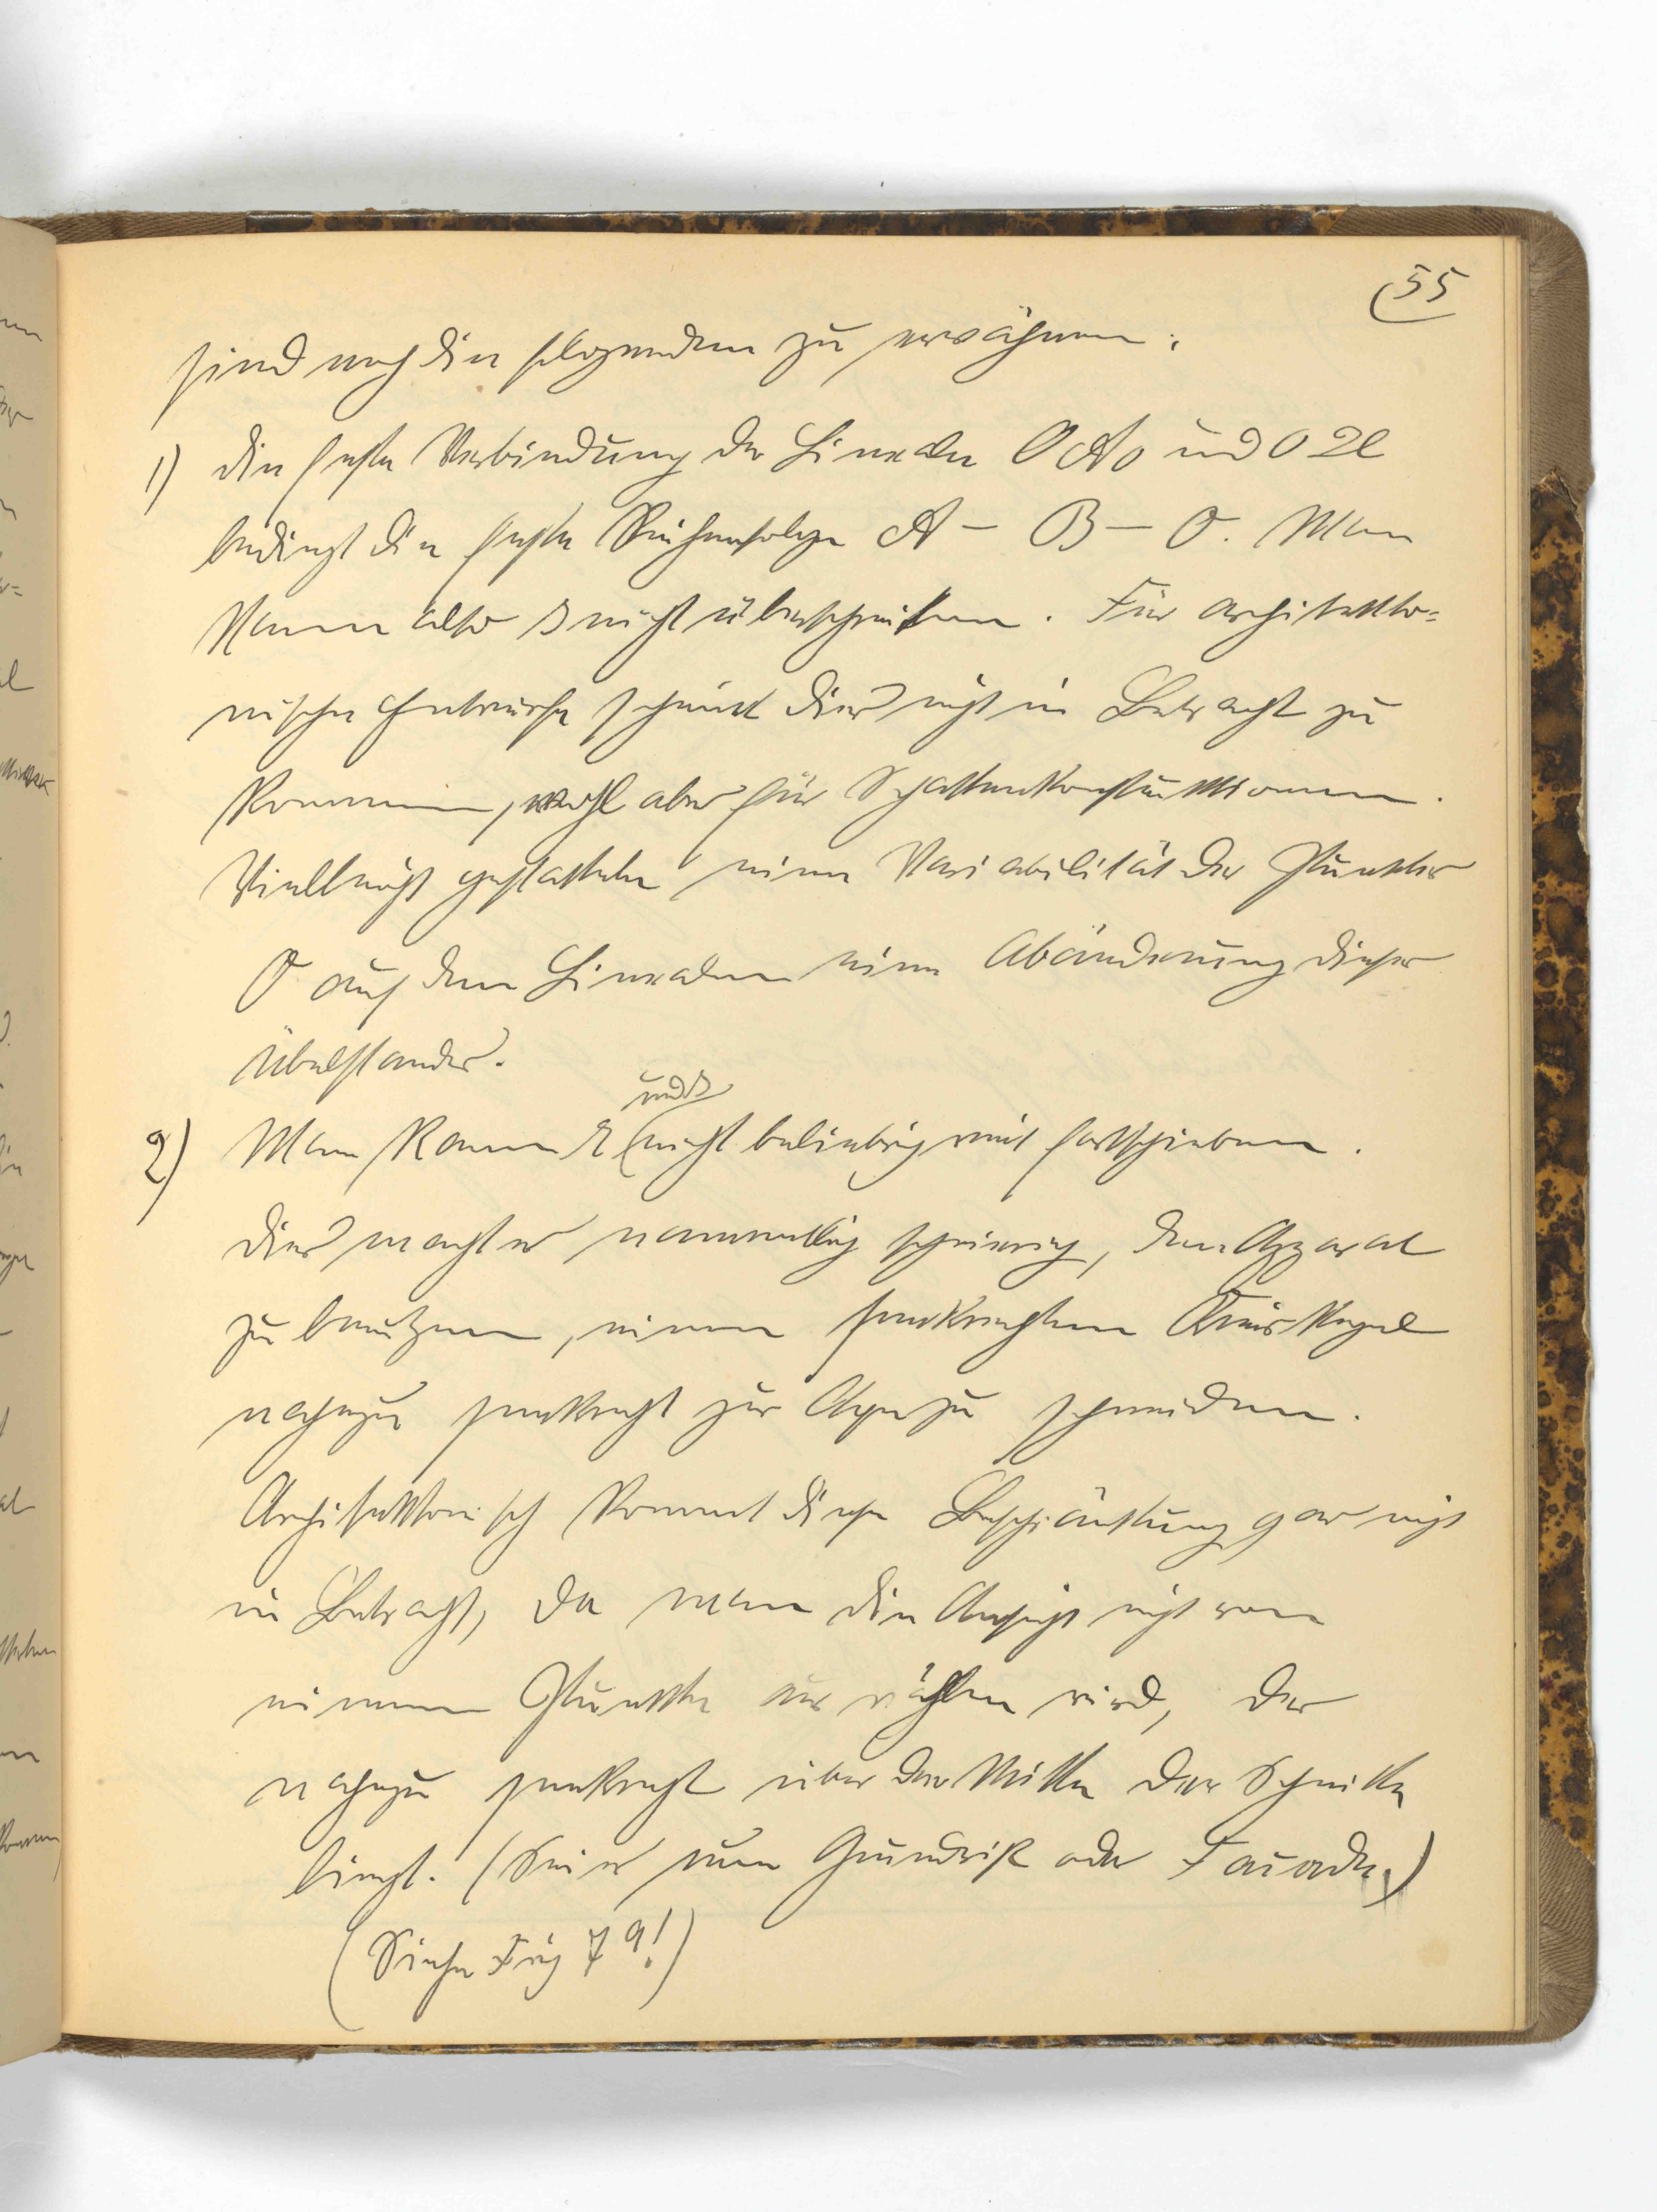 55
sind noch die folgenden zu erwähnen:
1) Die feste Verbindung der Lineale O A₀ und O
bedingt die feste Reihenfolge A — B — O. Man
kann also B nicht überschreiten. Für architekto-
nische Entwürfe scheint dies nicht in Betracht zu
kommen, wohl aber für Schattenkonstruktionen.
Vielleicht gestattete eine Variabilität der Punkte
O auf den Linealen eine Abänderung dieses
Übelstandes.
und B
2) Man kann A nicht beliebig weit fortschieben.
Dies macht es namentlich schwierig, den Apparat
zu benutzen, einen senkrechten Kreiskegel
nahezu senkrecht zur Axe zu schneiden.
Architektonisch kommt diese Beschränkung gar nicht
in Betracht, da man die Ansicht nicht von
einem Punkte aus wählen wird, der
nahezu senkrecht über der Mitte der Schnitte
liegt. (Sei es nun Grundriß oder Facade.)
(Siehe Fig 7 a!)